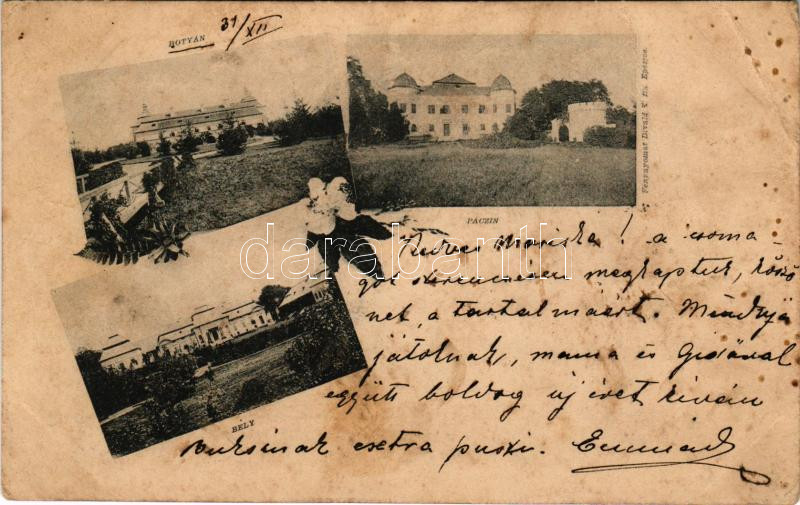 BOTYÁN
31/XII
PÁCZIN
Fénynyomat Divald K. fia, Eperjes.
darabanth
BÉLY
Kedves Mariska! a csoma-
got szerencsésen megkaptuk, köszö
net a tartalmáért. Mindnyá
jatoknak, mama és Gidával
együtt boldog új évet kíván
extra puszi.